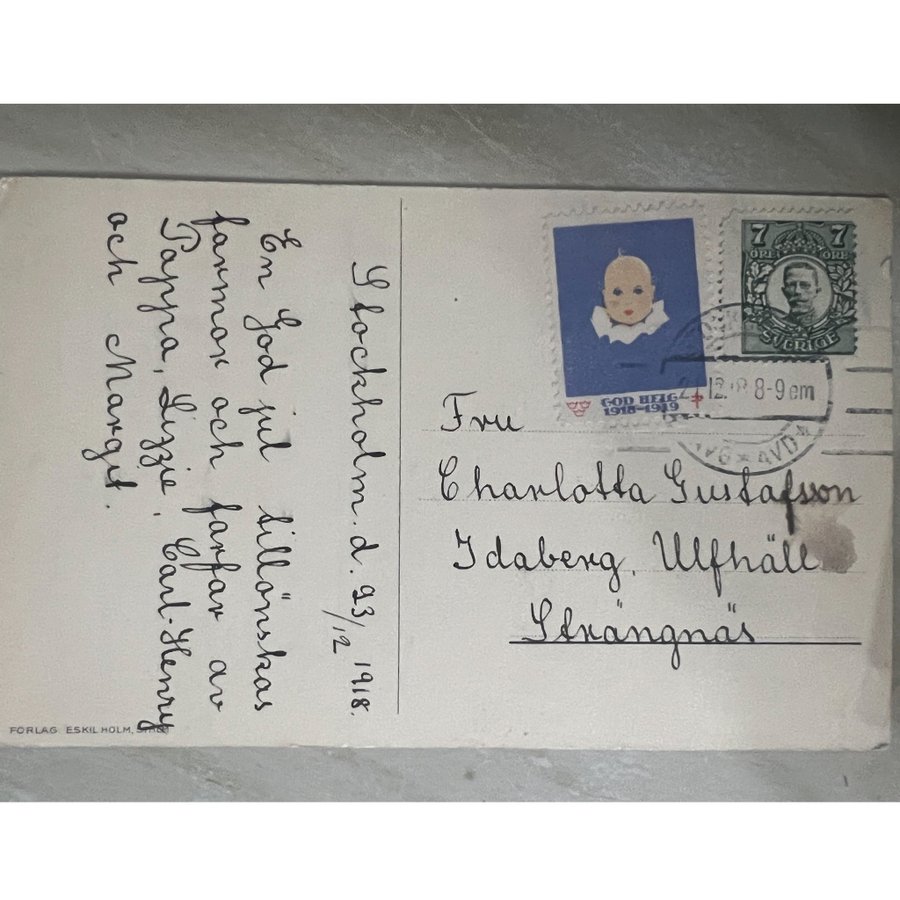 Stockholm. d. 23/12 1918.
En God jul tillönskas
farmor och farfar av
Pappa, Lizzie, Carl-Henry
och Margit.
FÖRLAG ESKIL HOLM,
GOD HELG
1918-1919
7 7
ÖRE ÖRE
SVERIGE
12 8-9 em
AVD
Fru
Charlotta Gustafsson
Idaberg, Ulfhäll
Strängnäs